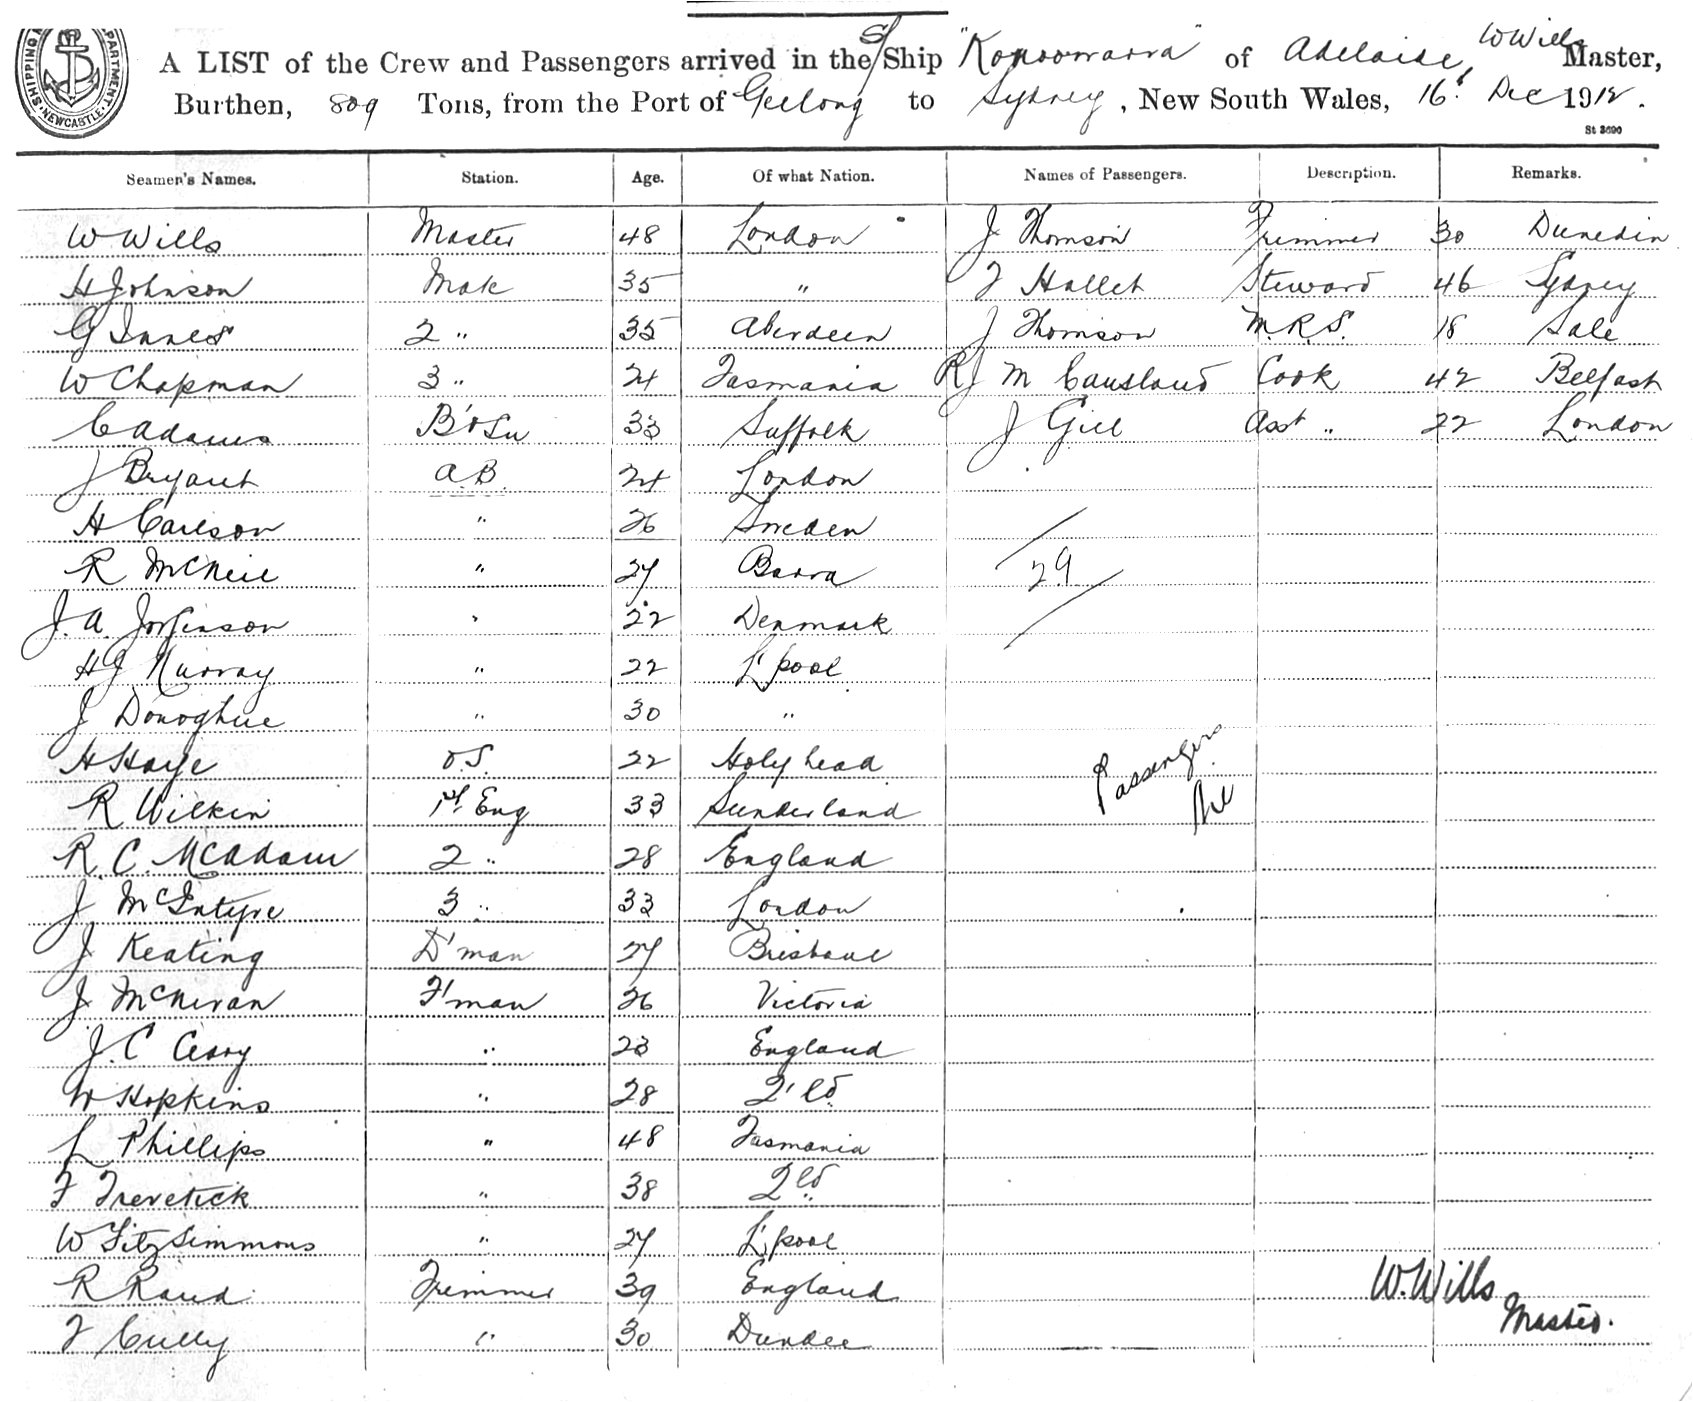 SHIPPING DEPARTMENT. NEWCASTLE.
A LIST of the Crew and Passengers arrived in the S/Ship "Konoowarra" of Adelaide, W Wills Master,
Burthen, 809 Tons, from the Port of Geelong to Sydney, New South Wales, 16t Dec 1912.
St 3690
Seamen's Names. Station. Age. Of what Nation. Names of Passengers. Description. Remarks.
W Wills Master 48 London J Thomson Trimmer 30 Dunedin
H Johnson Mate 35 " F Hallet Steward 46 Sydney
G Innes 2 " 35 Aberdeen J Thomson M.R.S. 18 Sale
W Chapman 3 " 24 Tasmania RJ McCausland Cook 42 Belfast
C Adams 33 Suffolk J Gill Asst " 22 London
J Bryant A.B. 24 London
H Carlson " 26 Sweden
R McNeil " 27 Barra 29
J. A. Jorginson " 22 Denmark
HJ Murray " 22 L'pool
J Donoghue " 30 "
H Haye O.S. 22 Holyhead Passengers
R Wilkin 1st Eng 33 Sunderland Nil
R. C. McAdam 2 " 28 England
J McIntyre 3 " 33 London
J Keating D'man 27 Brisbane
J McNivan F'man 26 Victoria
J. C " 23 England
W Hopkins " 28 Q'ld
L Phillips " 48 Tasmania
F Tretick " 38 Qld
W FitzSimmons " 27 L'pool
R Rand Trimmer 39 England W. Wills
F Cully " 30 Dundee Master.